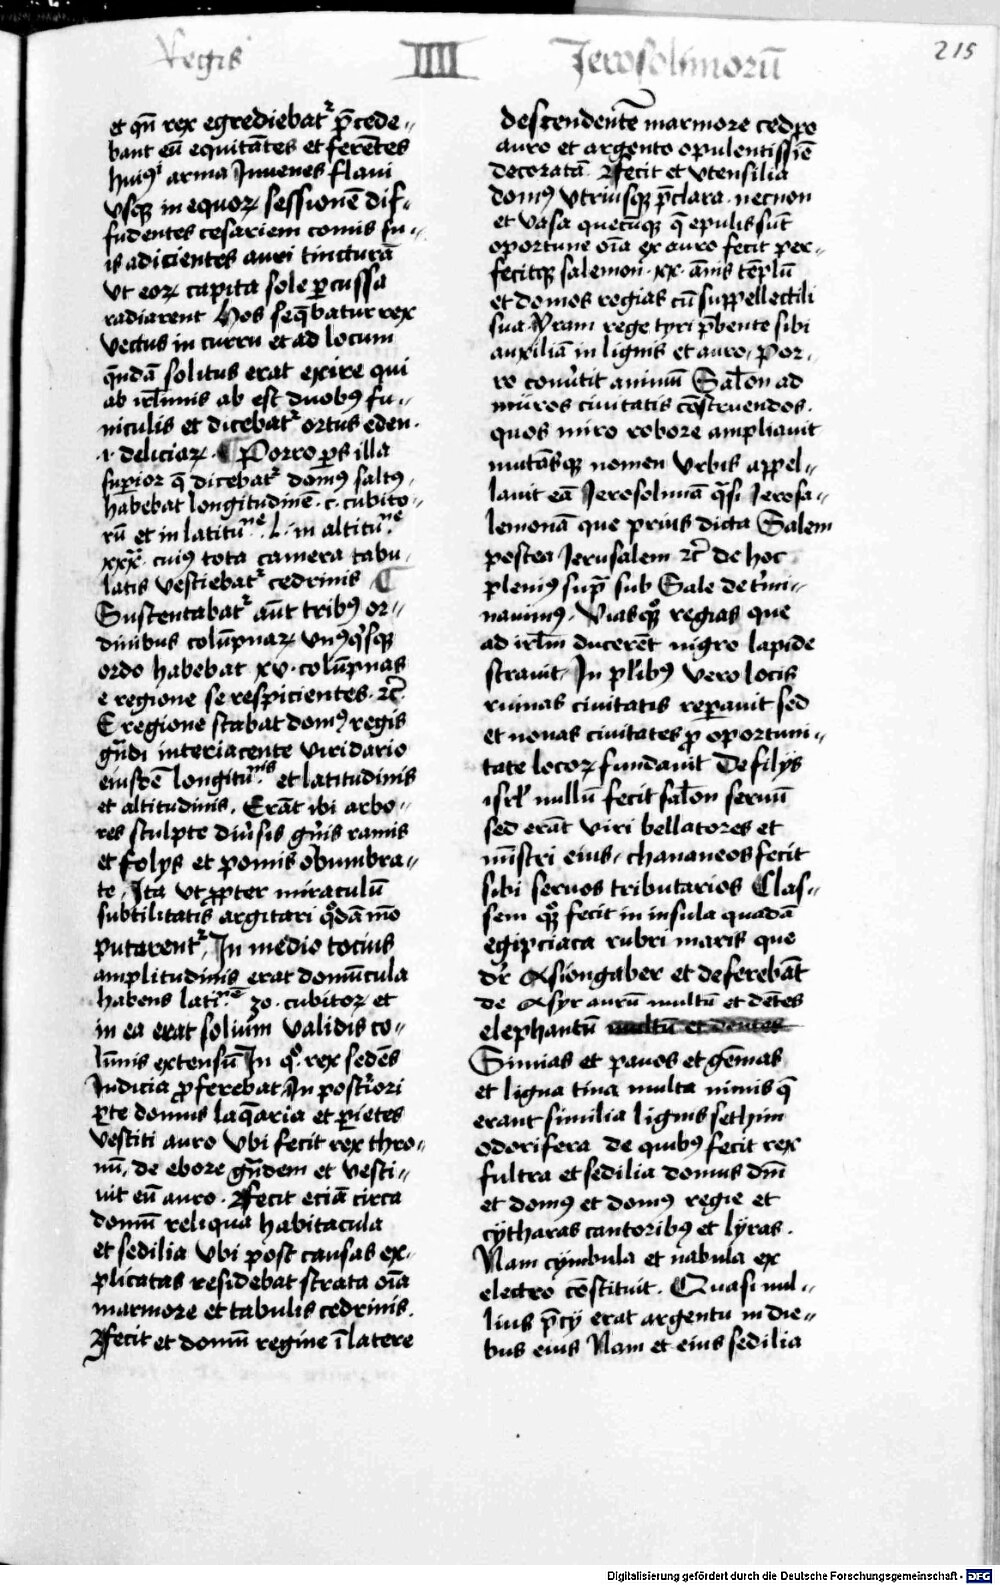 Regis IIII Jerosolimorū 215
et qn̄ rex egrediebatʳ p̄cede-
bant eū equitātes et ferētes
huiꝰ arma Juuenes flaui
vsqꝫ in equoꝝ sessionē dif-
fudentes cesariem comis su-
is adicientes auri tincturā
vt eoꝝ capita sole ꝑcussa
radiarent Hos seq̄batur rex
vectus in curru et ad locum
qūdā solitus erat exire qui
ab irl̄imis ab est duobꝰ fu-
niculis et dicebatʳ ortus eden.
.i. deliciaꝝ. ¶ Porro ꝑs illa
suꝑior q̄ dicebatʳ domꝰ saltꝰ,
habebat longitudinē .c. cubito-
rū et in latitu.ⁿᵉ .L. in altitu.ⁿᵉ
xxx. cuiꝰ tota camera tabu-
latis vestiebatʳ cedrinis ¶
Sustentabatʳ aūt tribꝰ or-
dinibus colūpnaꝝ vnꝰqⁱsqꝫ
ordo habebat xv. colūpnas
e regione se respicientes .ꝛc̄.
E regione stabat domꝰ regis
gūdi interiacente viridario
eiusdē longitu.ⁿⁱˢ et latitudinis
et altitudinis. Erāt ibi arbo-
res sculpte diūsis gn̄is ramis
et folys et pomis obumbra-
te, Ita vt ꝓpter miraculū
subtilitatis argitari qᵒdā mō
putarentʳ, In medio tocius
amplitudinis erat domūcula
habens lati.ⁿᵉ 30. cubitoꝝ et
in ea erat solium validis co-
lūnis extensū In qᵒ. rex sedēs
Iudicia ꝓferebat, In postīori
ꝑte domus laq̄aria et ꝑietes
vestiti auro vbi fecit rex thro-
nū, de ebore gn̄dem et vesti-
uit eū auro. Fecit eciā circa
domū reliqua habitacula
et sedilia vbi post causas ex-
plicatas residebat strata oīa
marmore et tabulis cedrinis.
Fecit et domū regine ī latere
descendentē marmore cedro
auro et argento opulentissiē
decoratā. Fecit et vtensilia
domꝰ vtriusqꝫ p̄clara. necnon
et vasa quecūqꝫ q̄ epulis sūt
oportune oīa ex auro fecit per-
fecitqꝫ salemon .xx. ānis tēplū
et domos regias cū suppellectili
sua yram rege tyri p̄bente sibi
auxiliā in lignis et auro, Por-
ro conūtit animū Sal̄on ad
mūros ciuitatis cōstruendos.
quos miro robore ampliauit
mutāsqꝫ nomen vrbis appel-
lauit eā Jerosolimā q̄si Jerosa-
lemonā que prius dicta Salem
postea Jerusalem ꝛc̄ de hoc
pleniꝰ sup̄ sub Sale det̄mi-
nauimꝰ. Viasqꝫ regias que
ad irl̄m ducerēt nigro lapide
strauit, In pl̄ibꝰ vero locis
ruinas ciuitatis reꝑauit sed
et nouas ciuitates ꝓ oportuni-
tate locoꝝ fundauit De filys
isrl̄ nullū fecit sal̄on seruū
sed erāt viri bellatores et
mīstri eius, chananeos fecit
sibi seruos tributarios Clas-
sem qꝫ fecit in insula quadā
egipciaca rubri maris que
dr̄ Asiongaber et deferebāt
de Asyr aurū multū et dētes
elephantū multū et dentes
Simias et pauos et gēmas
et ligna tina multa nimis q̄
erant similia lignis sethim
odorifera de quibꝰ fecit rex
fultra et sedilia domus dn̄i
et domꝰ et domꝰ regie et
cytharas cantoribꝰ et lyras.
Nam cymbula et nabula ex
electro cōstituit. Quasi nul-
lius p̄cy erat argentū in die-
bus eius Nam et eius sedilia
Digitalisierung gefördert durch die Deutsche Forschungsgemeinschaft - DFG